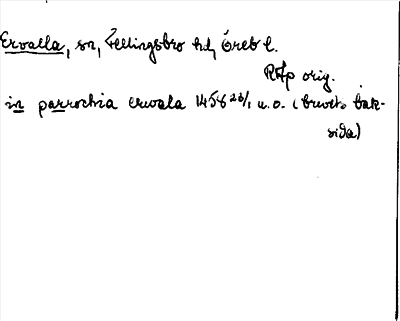 Ervalla, sn, Fellingsbro hd, Öreb l.
RAp orig.
in parrochia ervala 1458 28/1 u.o. (brevets bak-
sida)